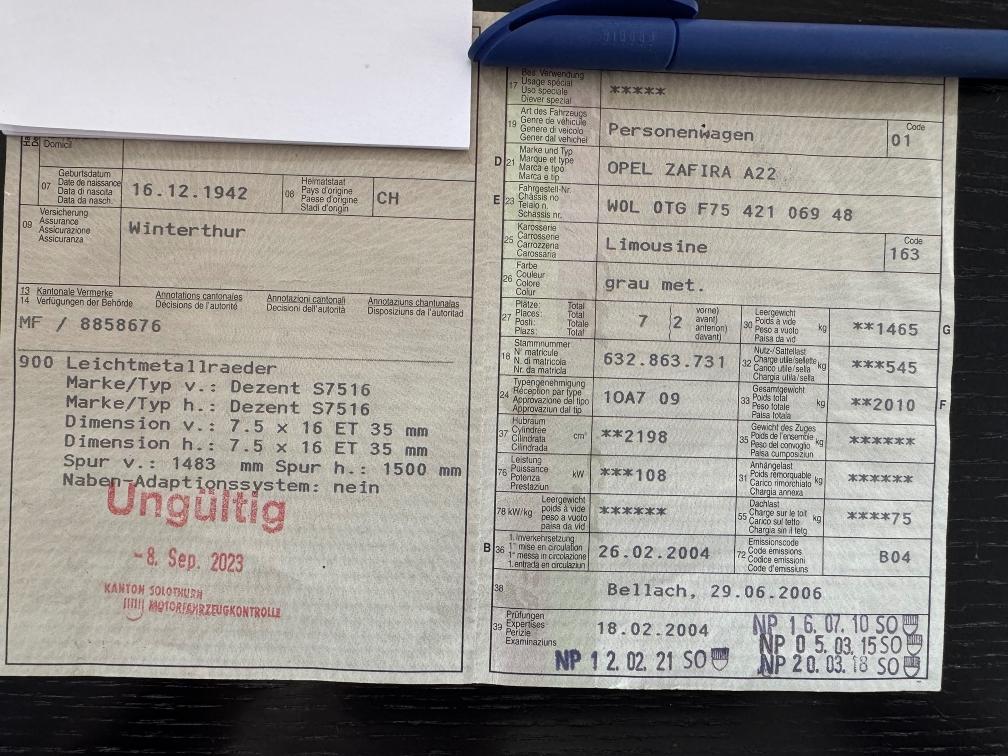 Domicil
07 Geburtsdatum
Date de naissance
Data di nascita
Data da nasch.
16.12.1942
08 Heimatstaat
Pays d'origine
Paese d'origine
Stadi d'origin
CH
09 Versicherung
Assurance
Assicurazione
Assicuranza
Winterthur
13 Kantonale Vermerke Annotations cantonales Annotazioni cantonali Annotaziuns chantunalas
14 Verfügungen der Behörde Décisions de l'autorité Decisioni dell'autorità Disposiziuns da l'autoritad
MF / 8858676
900 Leichtmetallraeder
Marke/Typ v.: Dezent S7516
Marke/Typ h.: Dezent S7516
Dimension v.: 7.5 x 16 ET 35 mm
Dimension h.: 7.5 x 16 ET 35 mm
Spur v.: 1483 mm Spur h.: 1500 mm
Naben-Adaptionssystem: nein
Ungültig
-8. Sep. 2023
KANTON SOLOTHURN
MOTORFAHRZEUGKONTROLLE
17 Bes. Verwendung
Usage spécial
Uso speciale
Diever spezial
*****
19 Art des Fahrzeugs
Genre de véhicule
Genere di veicolo
Gener dal vehichel
Personenwagen
Code
01
D 21 Marke und Typ
Marque et type
Marca e tipo
Marca e tip
OPEL ZAFIRA A22
E 23 Fahrgestell-Nr.
Châssis no
Telaio n.
Schassis nr.
WOL OTG F75 421 069 48
25 Karosserie
Carrosserie
Carrozzeria
Carossaria
Limousine
Code
163
26 Farbe
Couleur
Colore
Colur
grau met.
27 Plätze: Total
Places: Total
Posti: Totale
Plazs: Total
7 (2 vorne)
avant)
anteriori)
davant)
30 Leergewicht
Poids à vide
Peso a vuoto
Paisa da vid
kg
**1465 G
18 Stammnummer
N° matricule
N. di matricola
Nr. da matricla
632.863.731
32 Nutz-/Sattellast
Charge utile/sellette
Carico utile/sella
Chargia utila/sella
kg
***545
24 Typengenehmigung
Réception par type
Approvazione del tipo
Approvaziun dal tip
10A7 09
33 Gesamtgewicht
Poids total
Peso totale
Paisa totala
kg
**2010 F
37 Hubraum
Cylindrée
Cilindrata
Cilindrada
cm³
**2198
35 Gewicht des Zuges
Poids de l'ensemble
Peso del convoglio
Paisa cumposiziun
kg
******
76 Leistung
Puissance
Potenza
Prestaziun
kW
***108
31 Anhängelast
Poids remorquable
Carico rimorchiato
Chargia annexa
kg
******
78 kW/kg Leergewicht
poids à vide
peso a vuoto
paisa da vid
******
55 Dachlast
Charge sur le toit
Carico sul tetto
Chargia sin il tetg
kg
****75
B 36 1. Inverkehrsetzung
1re mise en circulation
1a messa in circolazione
1. entrada en circulaziun
26.02.2004
72 Emissionscode
Code émissions
Codice emissioni
Code d'emissiuns
B04
38
Bellach, 29.06.2006
39 Prüfungen
Expertises
Perizie
Examinaziuns
18.02.2004
NP 16.07.10 SO
NP 05.03.15 SO
NP 12.02.21 SO
NP 20.03.18 SO